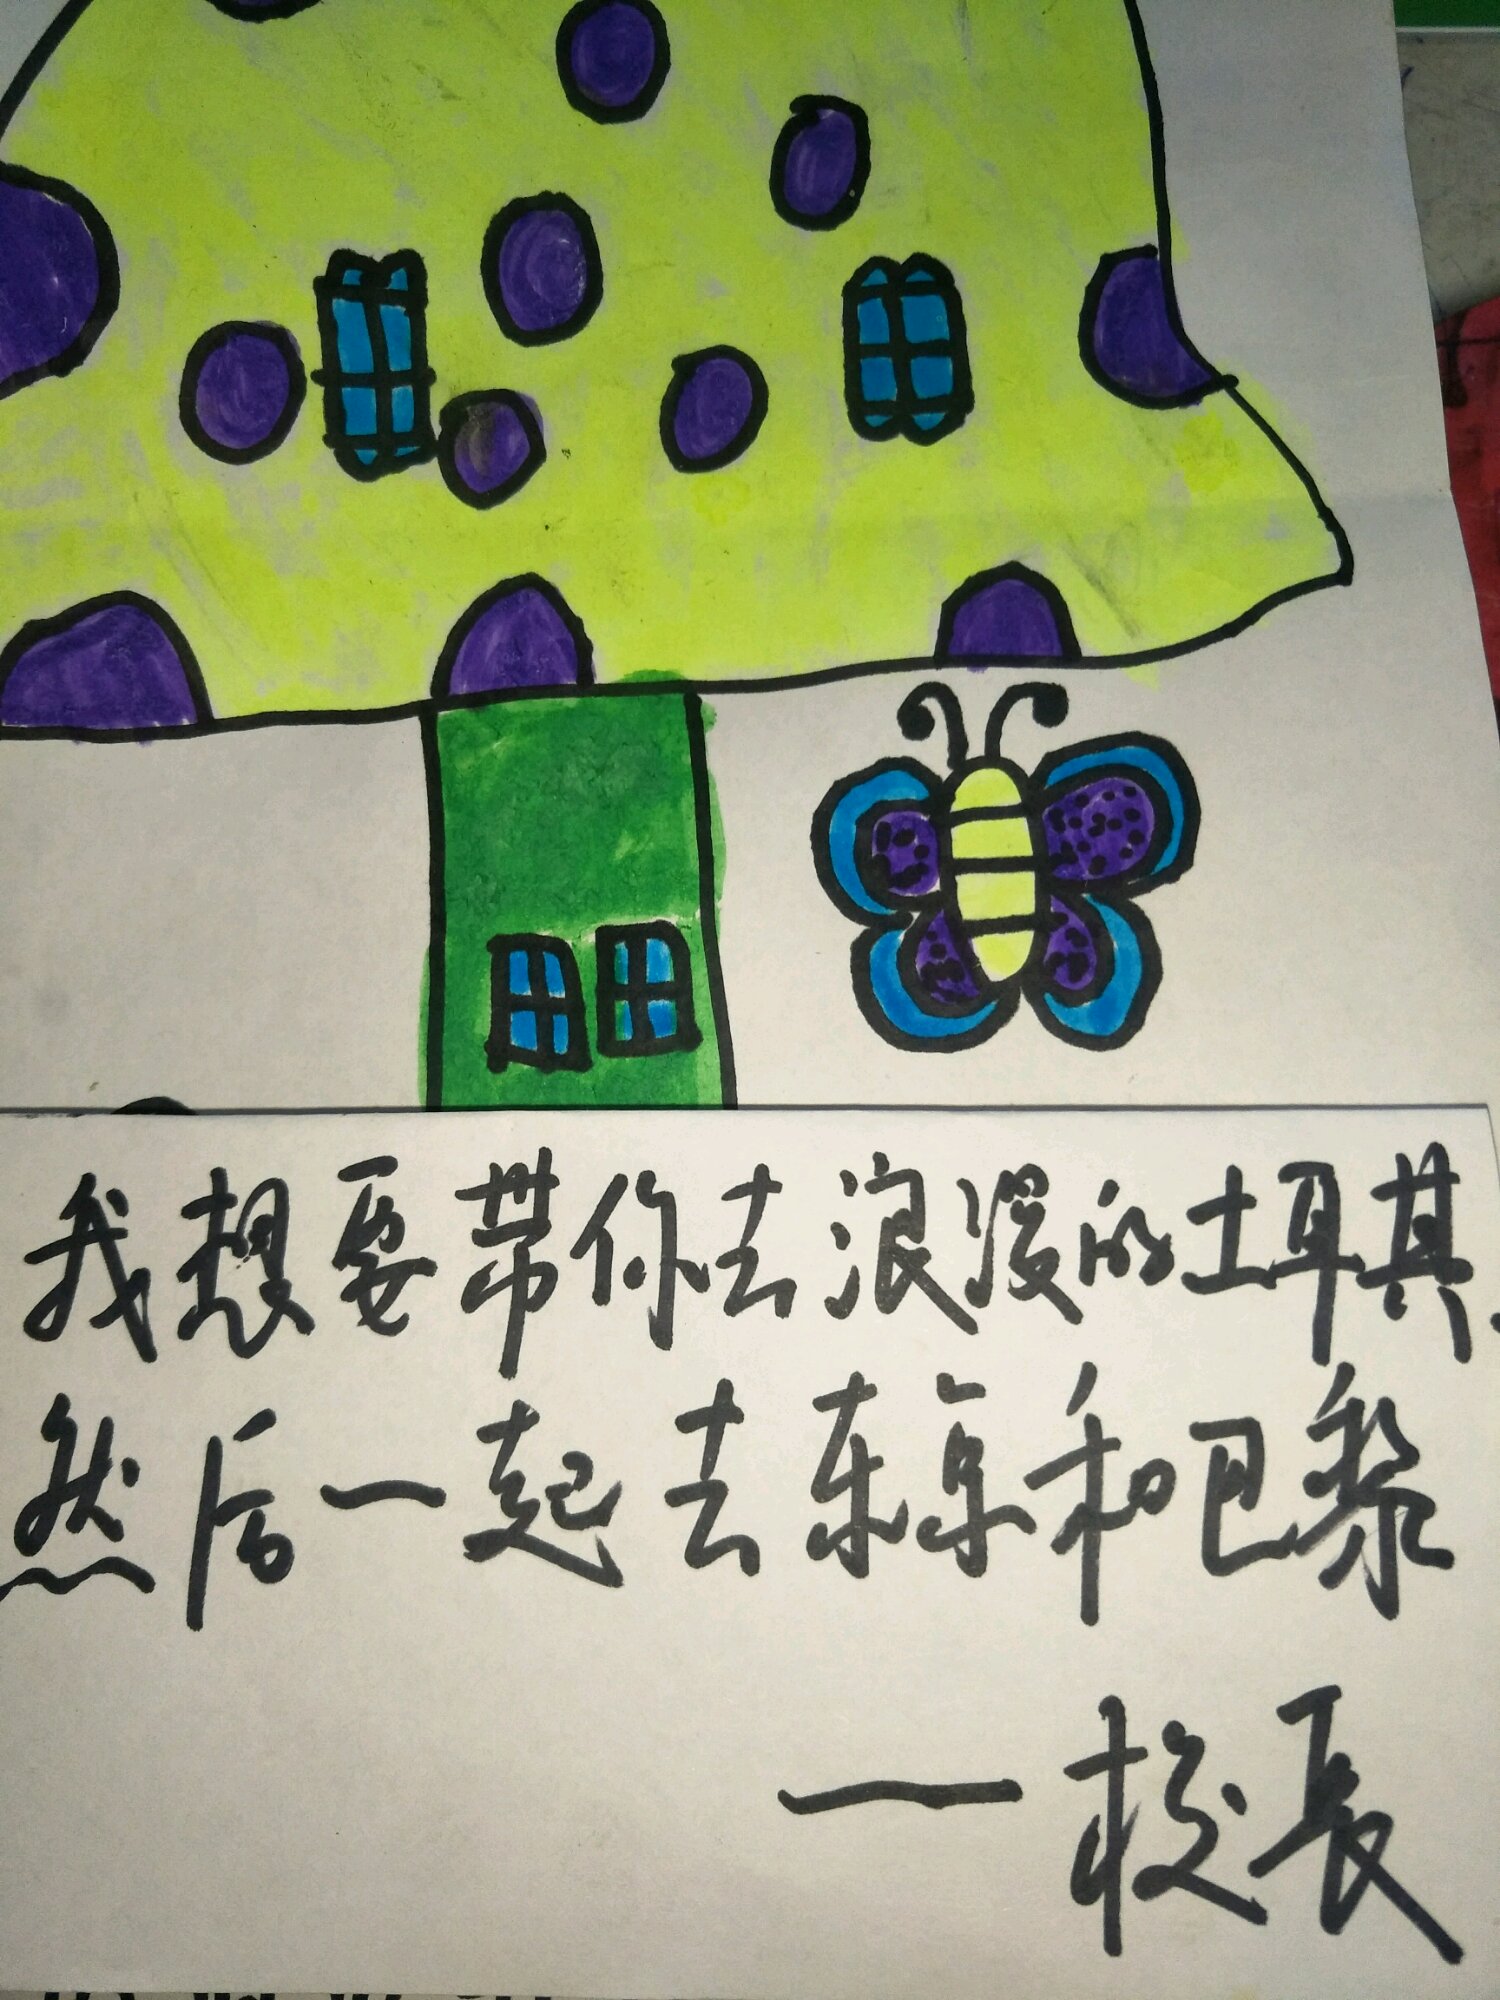 我想要带你去浪漫的土耳其.
然后一起去东京和巴黎
—校长